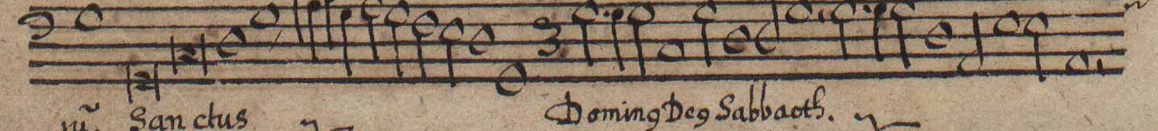 m̃. Sanctus Dominꝯ Deꝯ Sabbaoth.